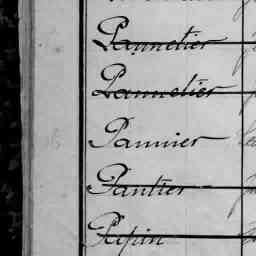 Pannetier
Pannetier
Pannier
Pautier
Pepin